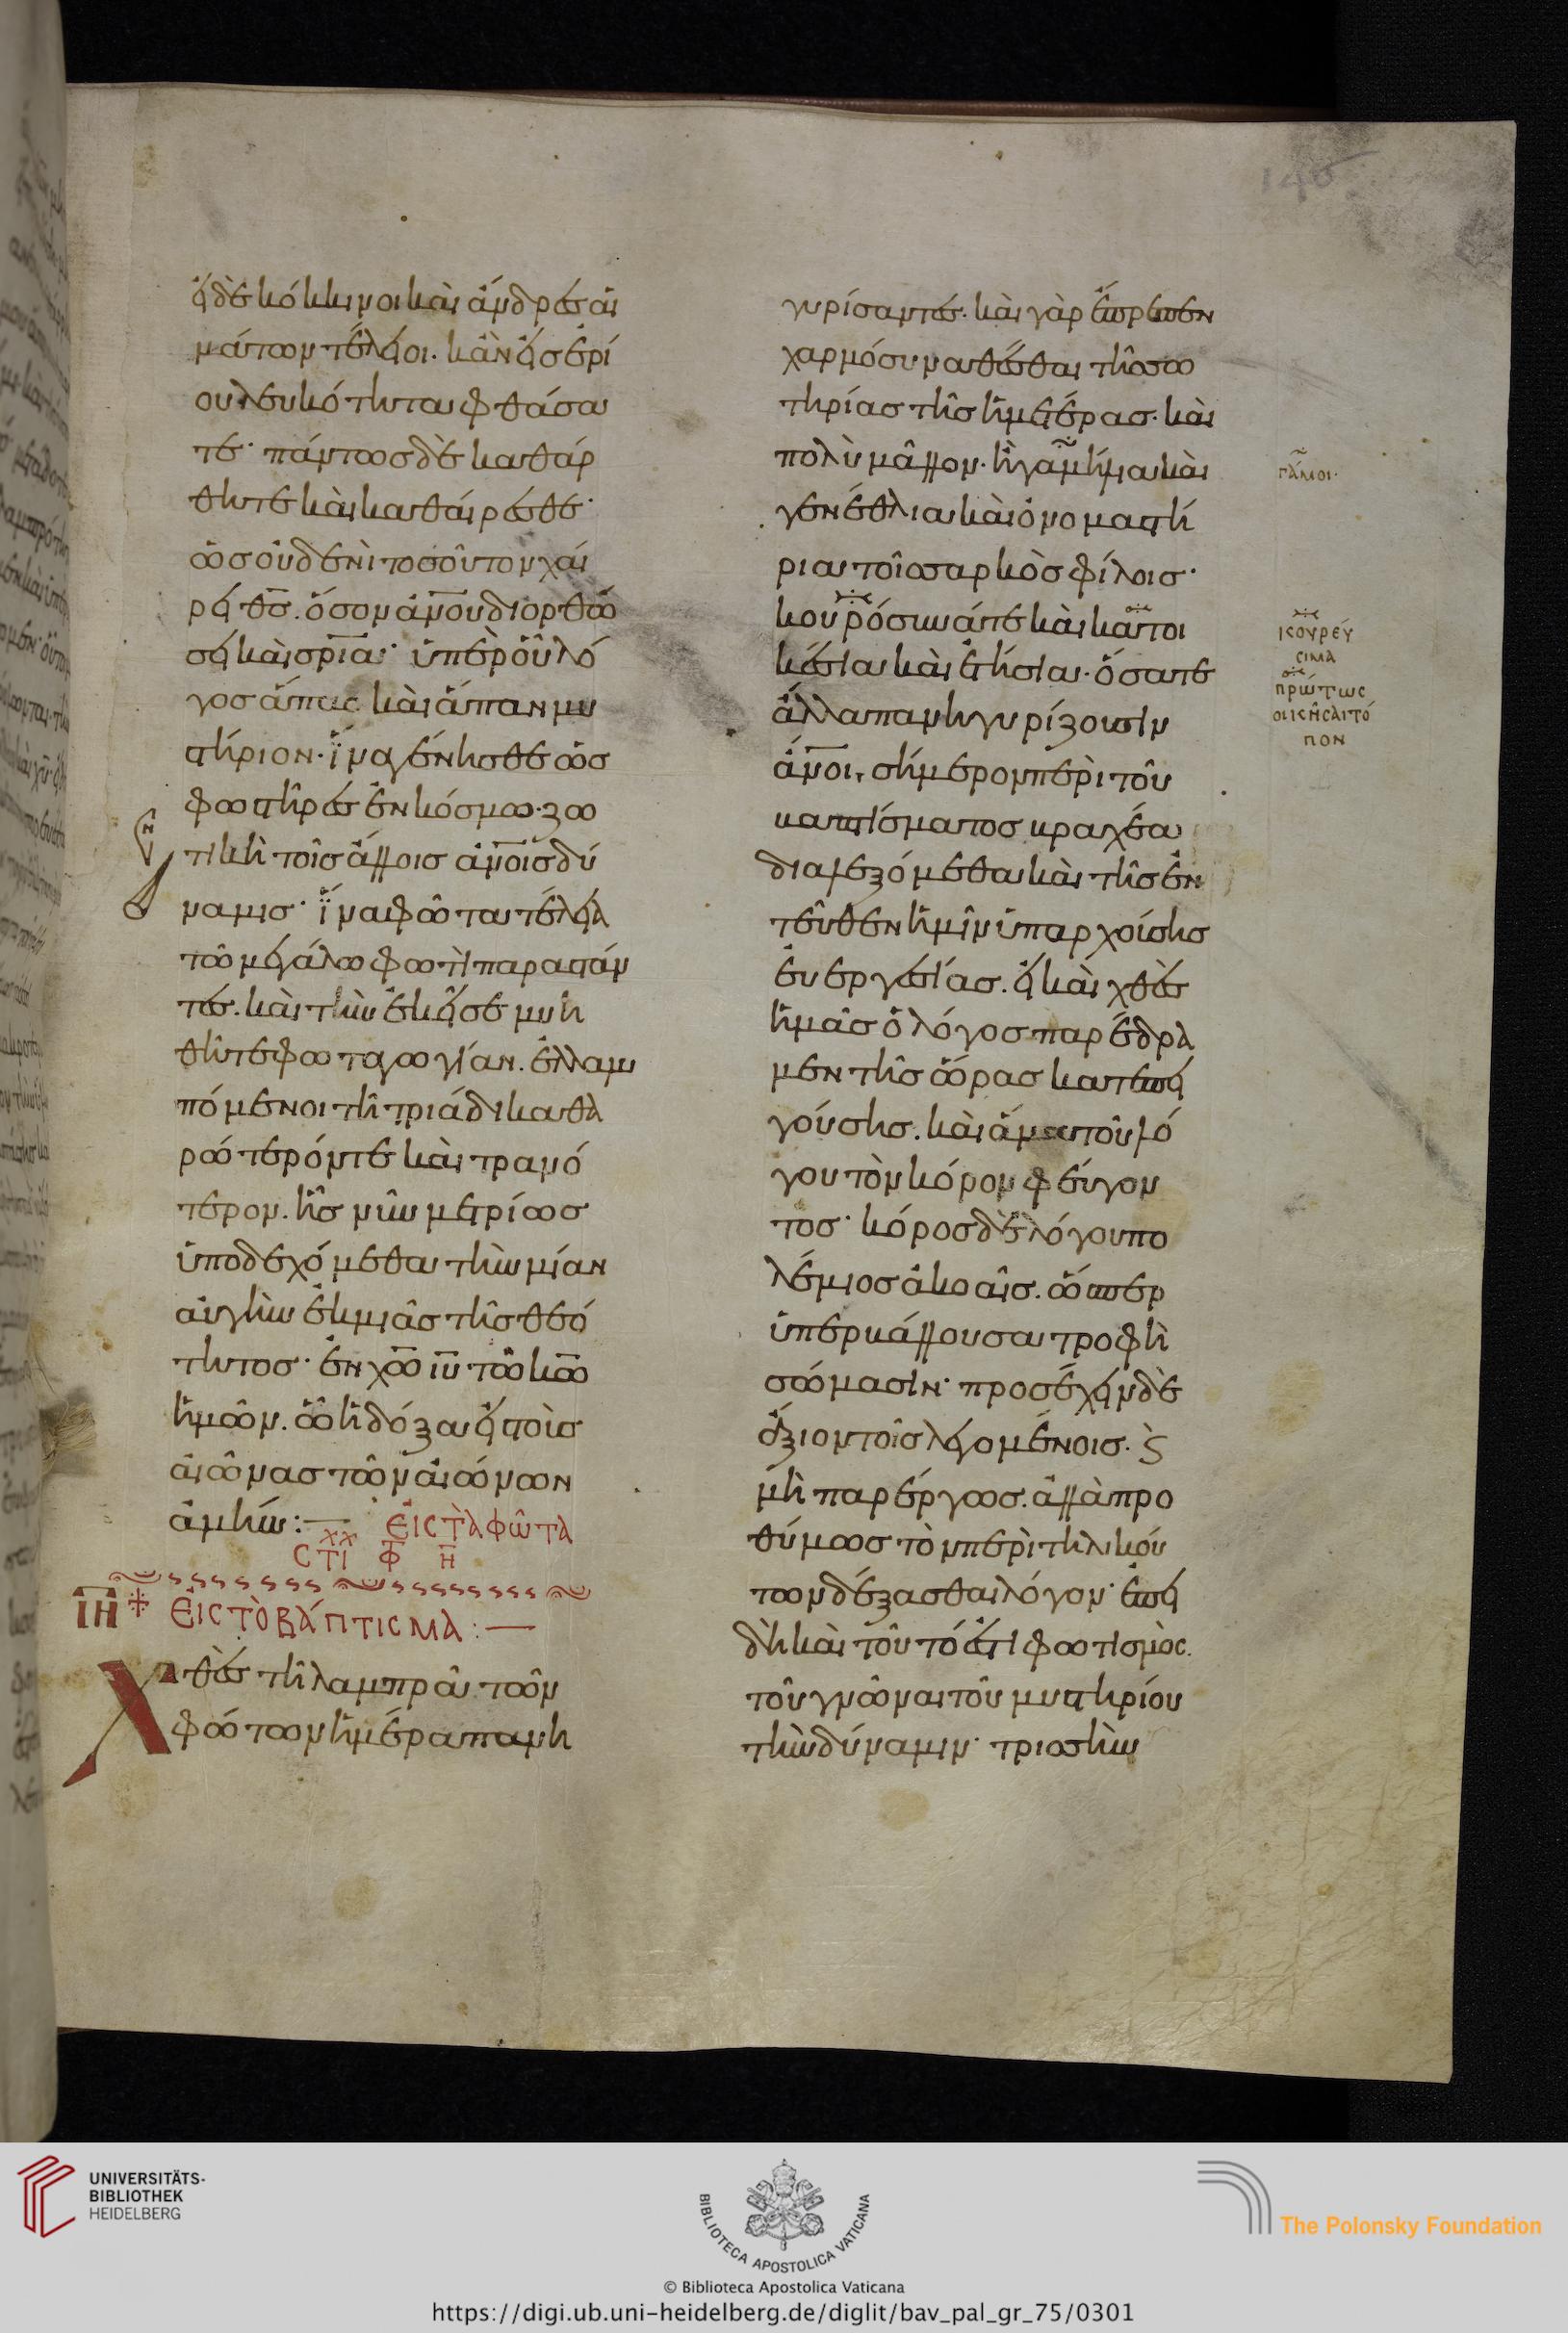 εἰ δὲ κόκκινοι καὶ ἄνδρες αἱ
μάτων τέλειοι. κἂν εἰς ἐρί
ου λευκότητα φθάσα
τε· πάντως δὲ καθάρ
θητε καὶ καθαίρεσθε·
ὡς οὐδενὶ τοσοῦτον χαί
ρει θς. ὅσον ἀνου διορθώ
σει καὶ σρία· ὑπὲρ οὗ λό
γος ἅπας καὶ ἅπαν μυ
στήριον· ἵνα γένησθε ὡς
φωστῆρες ἐν κόσμω· ζω
τικὴ τοῖς ἄλλοις ἀνοις δύ
ναμις· ἵνα φῶτα τέλεια
τῶ μεγάλω φωτὶ παραστάν
τες. καὶ τὴν ἐκεῖσε μυη
θῆτε φωταγωγίαν. ἐλλαμ
πόμενοι τῆ τριάδι καθα
ρώτερόν τε καὶ τρανό
τερον. ἧς νῦν μετρίως
ὑποδεχόμεθα τὴν μίαν
αὐγὴν ἐκ μιᾶς τῆς θεό
τητος· ἐν χῶ ιυ τῶ κω
ἡμῶν. ὧ ἡ δόξα εἰς τοὺς
αἰῶνας τῶν αἰώνων
ἀμήν:— ΕἸϹ ΤᾺ ΦΩ͂ΤΑ
ϹΤΙΧΧ Φ Η
ΙΗ ΕἸϹ ΤῸ ΒΆΠΤΙϹΜΑ:—
Χθὲς τῆ λαμπρᾶ τῶν
φώτων ἡμέρα πανη
γυρίσαντες. καὶ γὰρ ἔπρεπεν
χαρμόσυνα θέσθαι τῆς σω
τηρίας τῆς ἡμετέρας. καὶ
πολὺ μᾶλλον. ἢ γαμήλια καὶ
γενέθλια καὶ ὀνομαστή
ρια τοῖς σαρκὸς φίλοις·
κουρόσυνά τε καὶ κατοι
κέσια καὶ ἐτήσια. ὅσα τε
ἄλλα πανηγυρίζουσιν
ἄνοι, σήμερον περὶ τοῦ
βαπτίσματος βραχέα
διαλεξόμεθα καὶ τῆς ἐν
τεῦθεν ἡμῖν ὑπαρχούσης
εὐεργεσίας. εἰ καὶ χθὲς
ἡμᾶς ὁ λόγος παρέδρα
μεν τῆς ὥρας κατεπει
γούσης. καὶ ἅμα τοῦ λό
γου τὸν κόρον φεύγον
τος· κόρος δὲ λόγου πο
λέμιος ἀκοαῖς. ὥσπερ
ὑπερβάλλουσα τροφὴ
σώμασιν· προσέχειν δὲ
ἄξιον τοῖς λεγομένοις. ϗ
μὴ παρέργως. ἀλλὰ προ
θύμως τὸν περὶ τηλικού
των δέξασθαι λόγον· ἐπει
δὴ καὶ τοῦτό ἐστι φωτισμὸς.
τοῦ γνῶναι τοῦ μυστηρίου
τὴν δύναμιν· τρισσὴν
ΓΆΜΟΙ·
ΚΟΥΡΕΎ
ϹΙΜΑ
ΠΡΏΤΩϹ
ΟΙΚΗ͂ϹΑΙ ΤΌ
ΠΟΝ
146
UNIVERSITÄTS-
BIBLIOTHEK
HEIDELBERG
BIBLIOTECA APOSTOLICA VATICANA
The Polonsky Foundation
© Biblioteca Apostolica Vaticana
https://digi.ub.uni-heidelberg.de/diglit/bav_pal_gr_75/0301